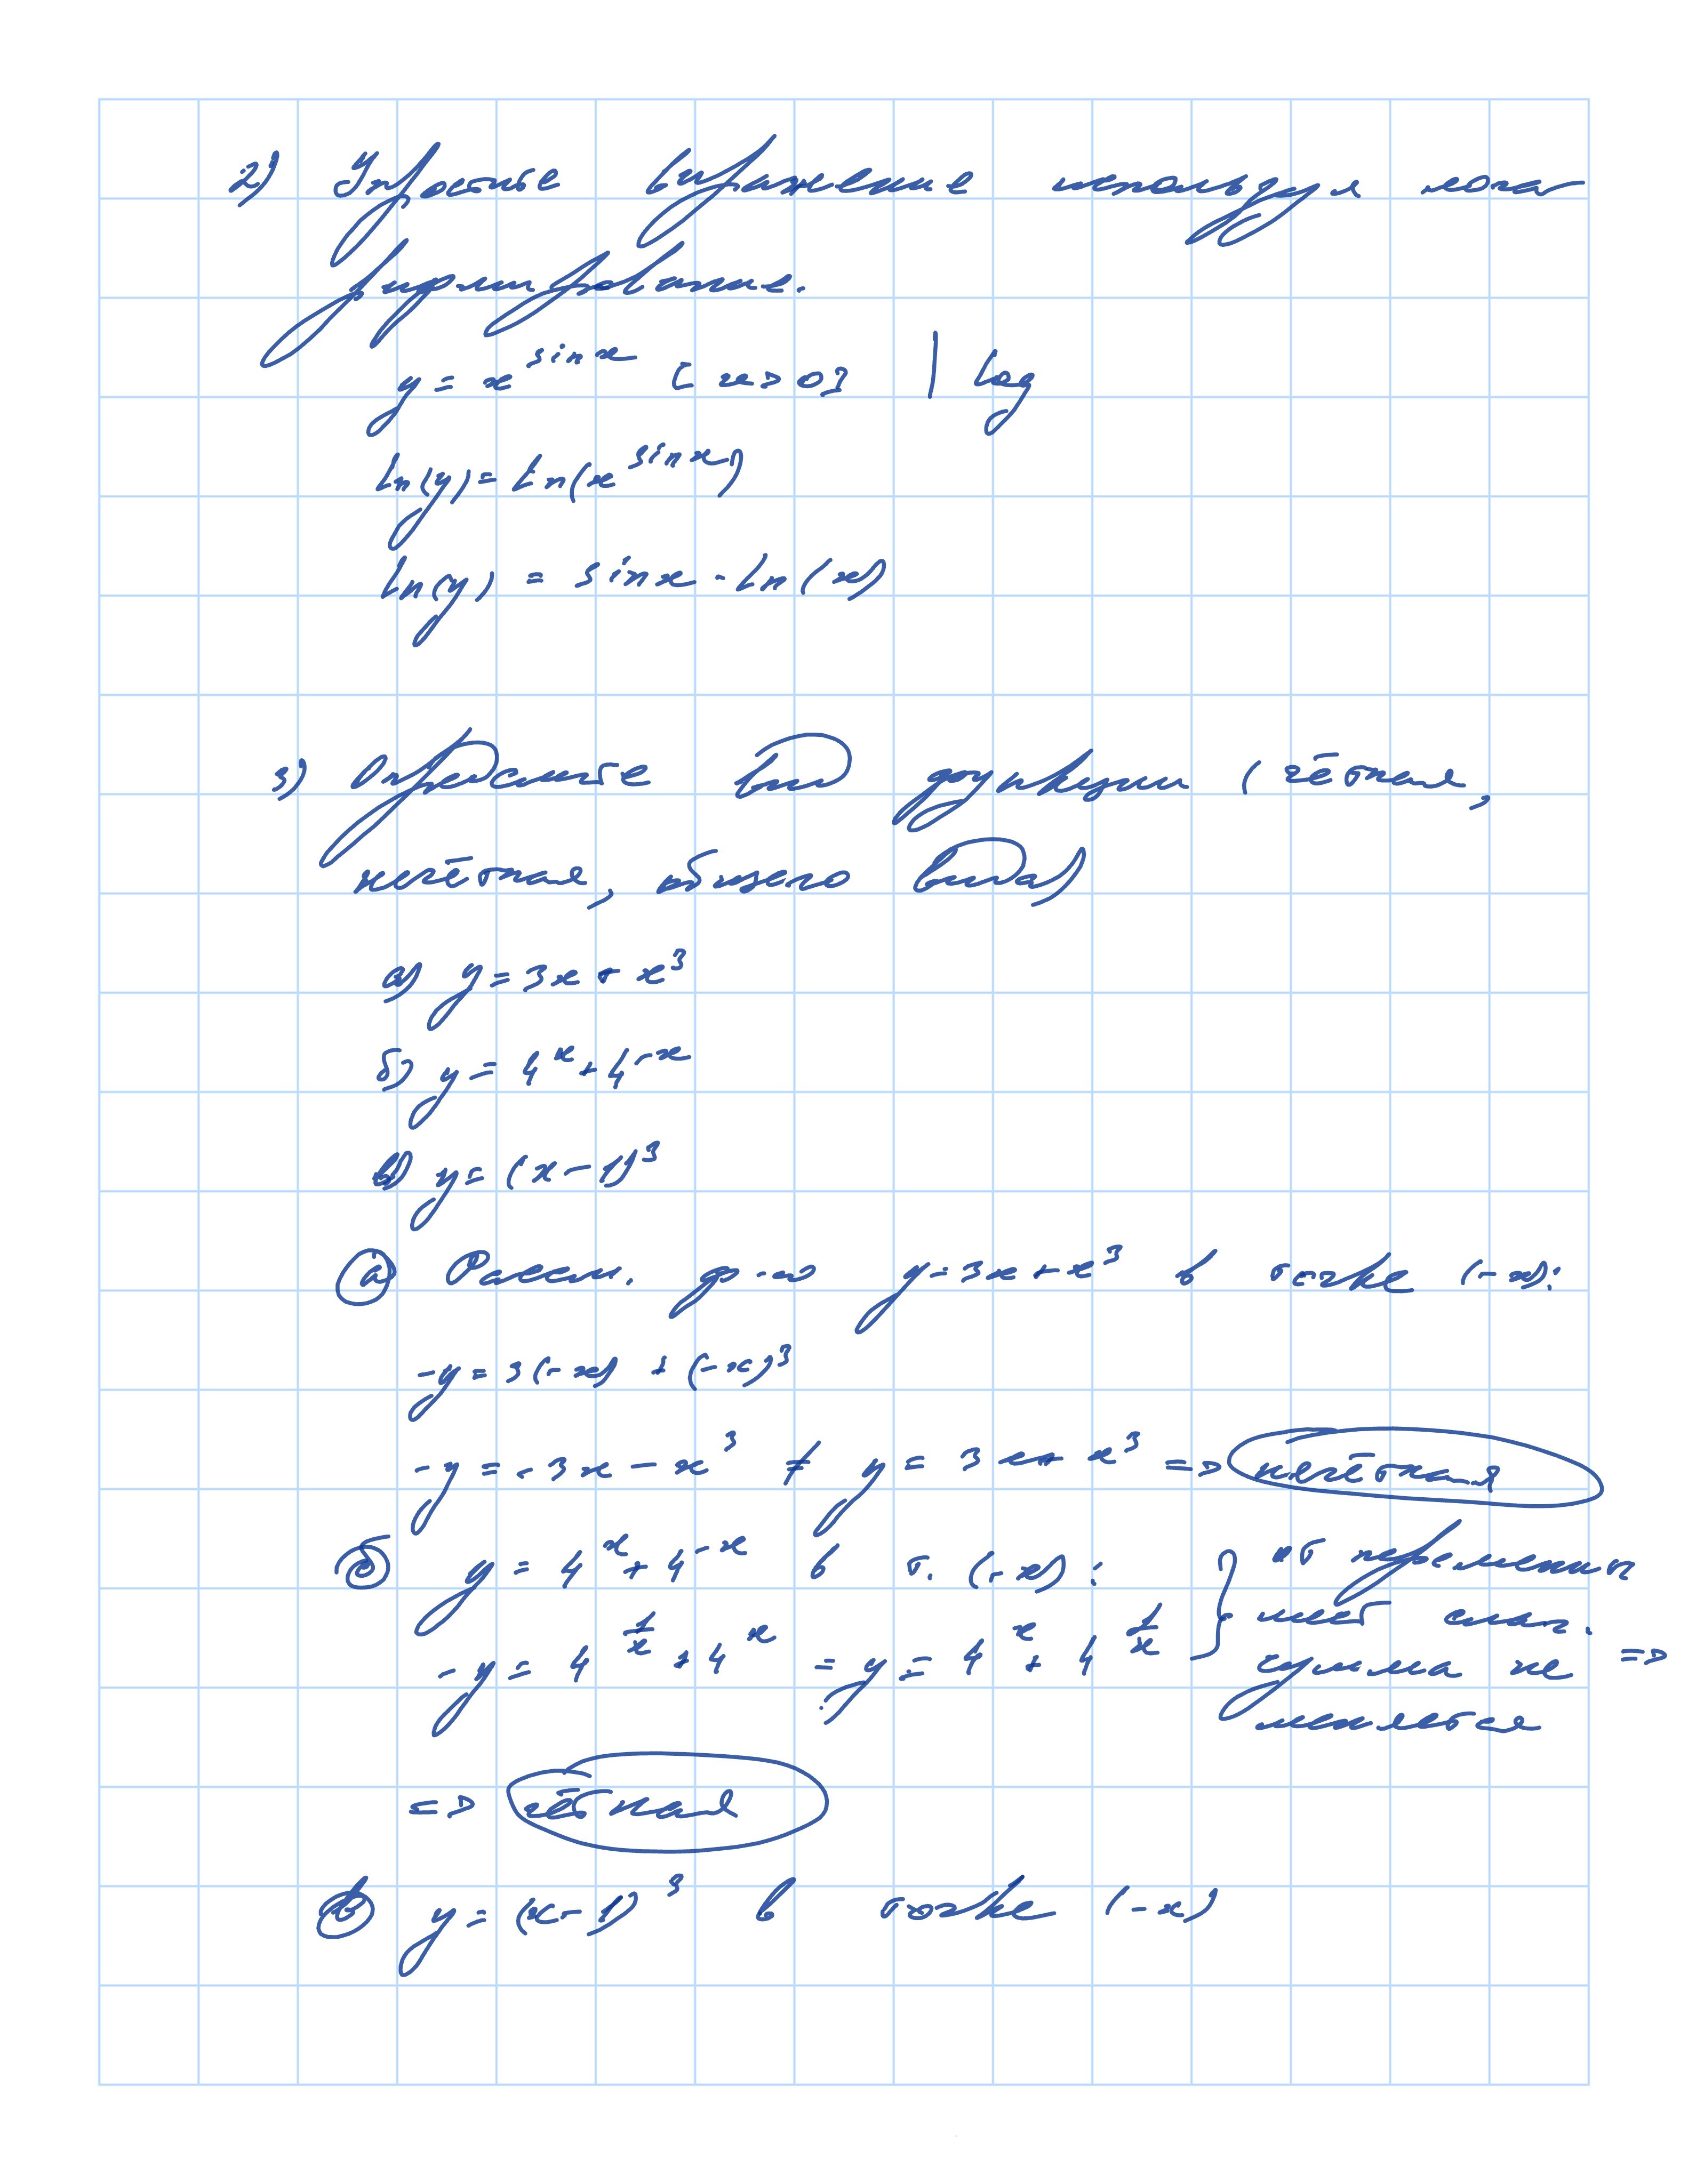 2) Упростите выражение используя лога
рифмирование.
y = x^sinx [x>0] | Log
Ln(y) = Ln(x^sinx)
Ln(y) = sinx · Ln(x)
3) Определите вид функции (чётная,
нечётная, общего вида)
а) y = 3x + x³
б) y = 4^x + 4^-x
в) y = (x-1)³
а) Рассм. ф-ю y = 3x + x³ в точке (-x):
-y = 3(-x) + (-x)³
-y = -3x - x³ ≠ y = 3x + x³ => нечётная
б) y = 4^x + 4^-x в т. (-x): } от перемены
-y = 4^(1/x) + 4^x = y = 4^x + 4^(1/x) мест слаг.
сумма не =>
меняется
=> чётная
в) y = (x-1)³ в точке (-x)